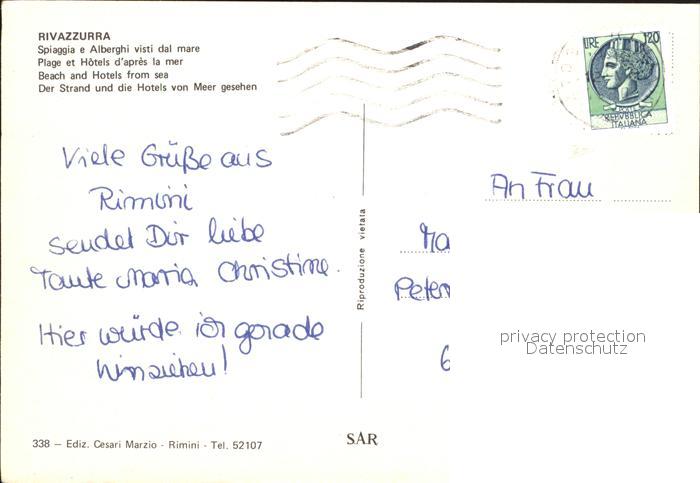 RIVAZZURRA
Spiaggia e Alberghi visti dal mare
Plage et Hôtels d'après la mer
Beach and Hotels from sea
Der Strand und die Hotels von Meer gesehen
LIRE 120
REPVBBLICA
ITALIANA
Viele Grüße aus
Rimini
sendet Dir liebe
Tante Maria Christine.
Hier würde ich gerade
hinziehen!
Riproduzione vietata
An Frau
Ma
Peter
6
privacy protection
Datenschutz
338 — Ediz. Cesari Marzio - Rimini - Tel. 52107
SAR